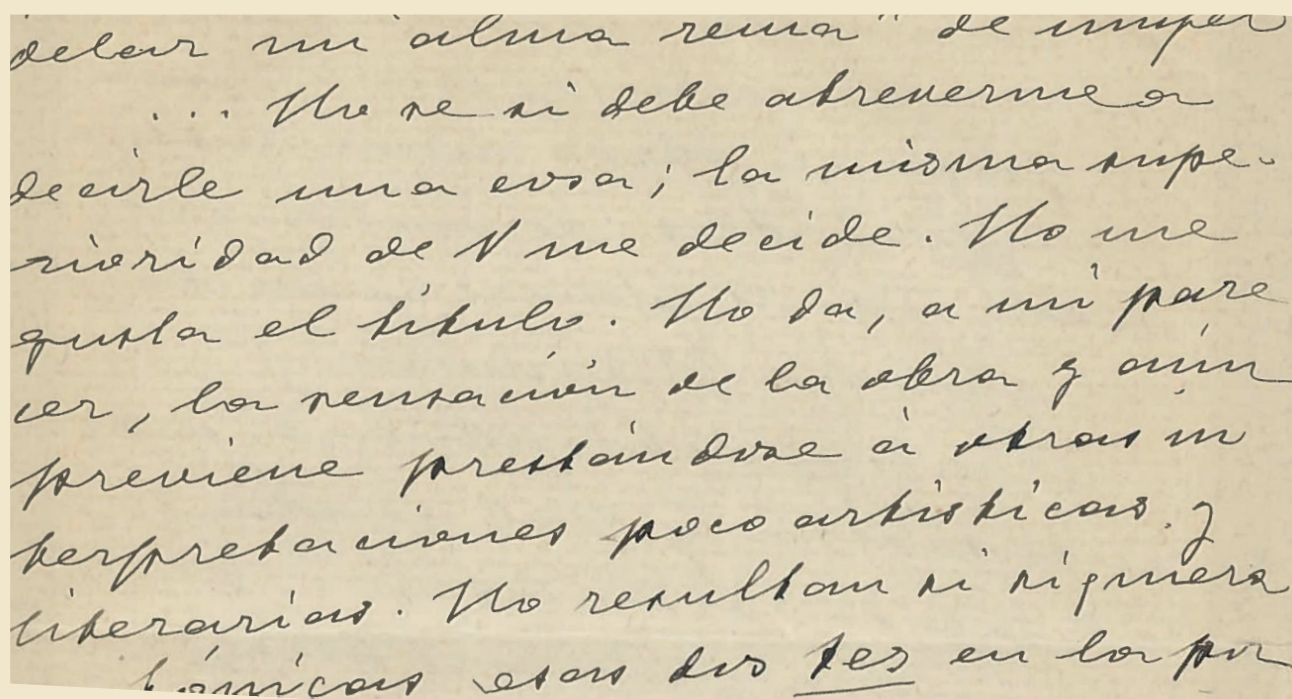 delar mi "alma rema" de imper
... No se si debe atreverme a
decirle una cosa; la misma supe-
rioridad de V me decide. No me
gusta el título. No da, a mi pare
cer, la sensación de la obra y aún
previene prestándose à otras in
terpretaciones poco artísticas y
literarias. No resultan ni siquiera
esas dos tes en la por